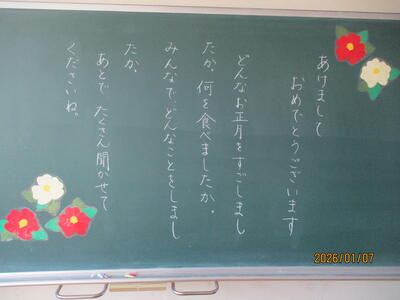 あけまして
おめでとうございます
どんなお正月をすごしまし
たか。何を食べましたか。
みんなで、どんなことをしまし
たか。
あとで、たくさん聞かせて
くださいね。
2026/01/07